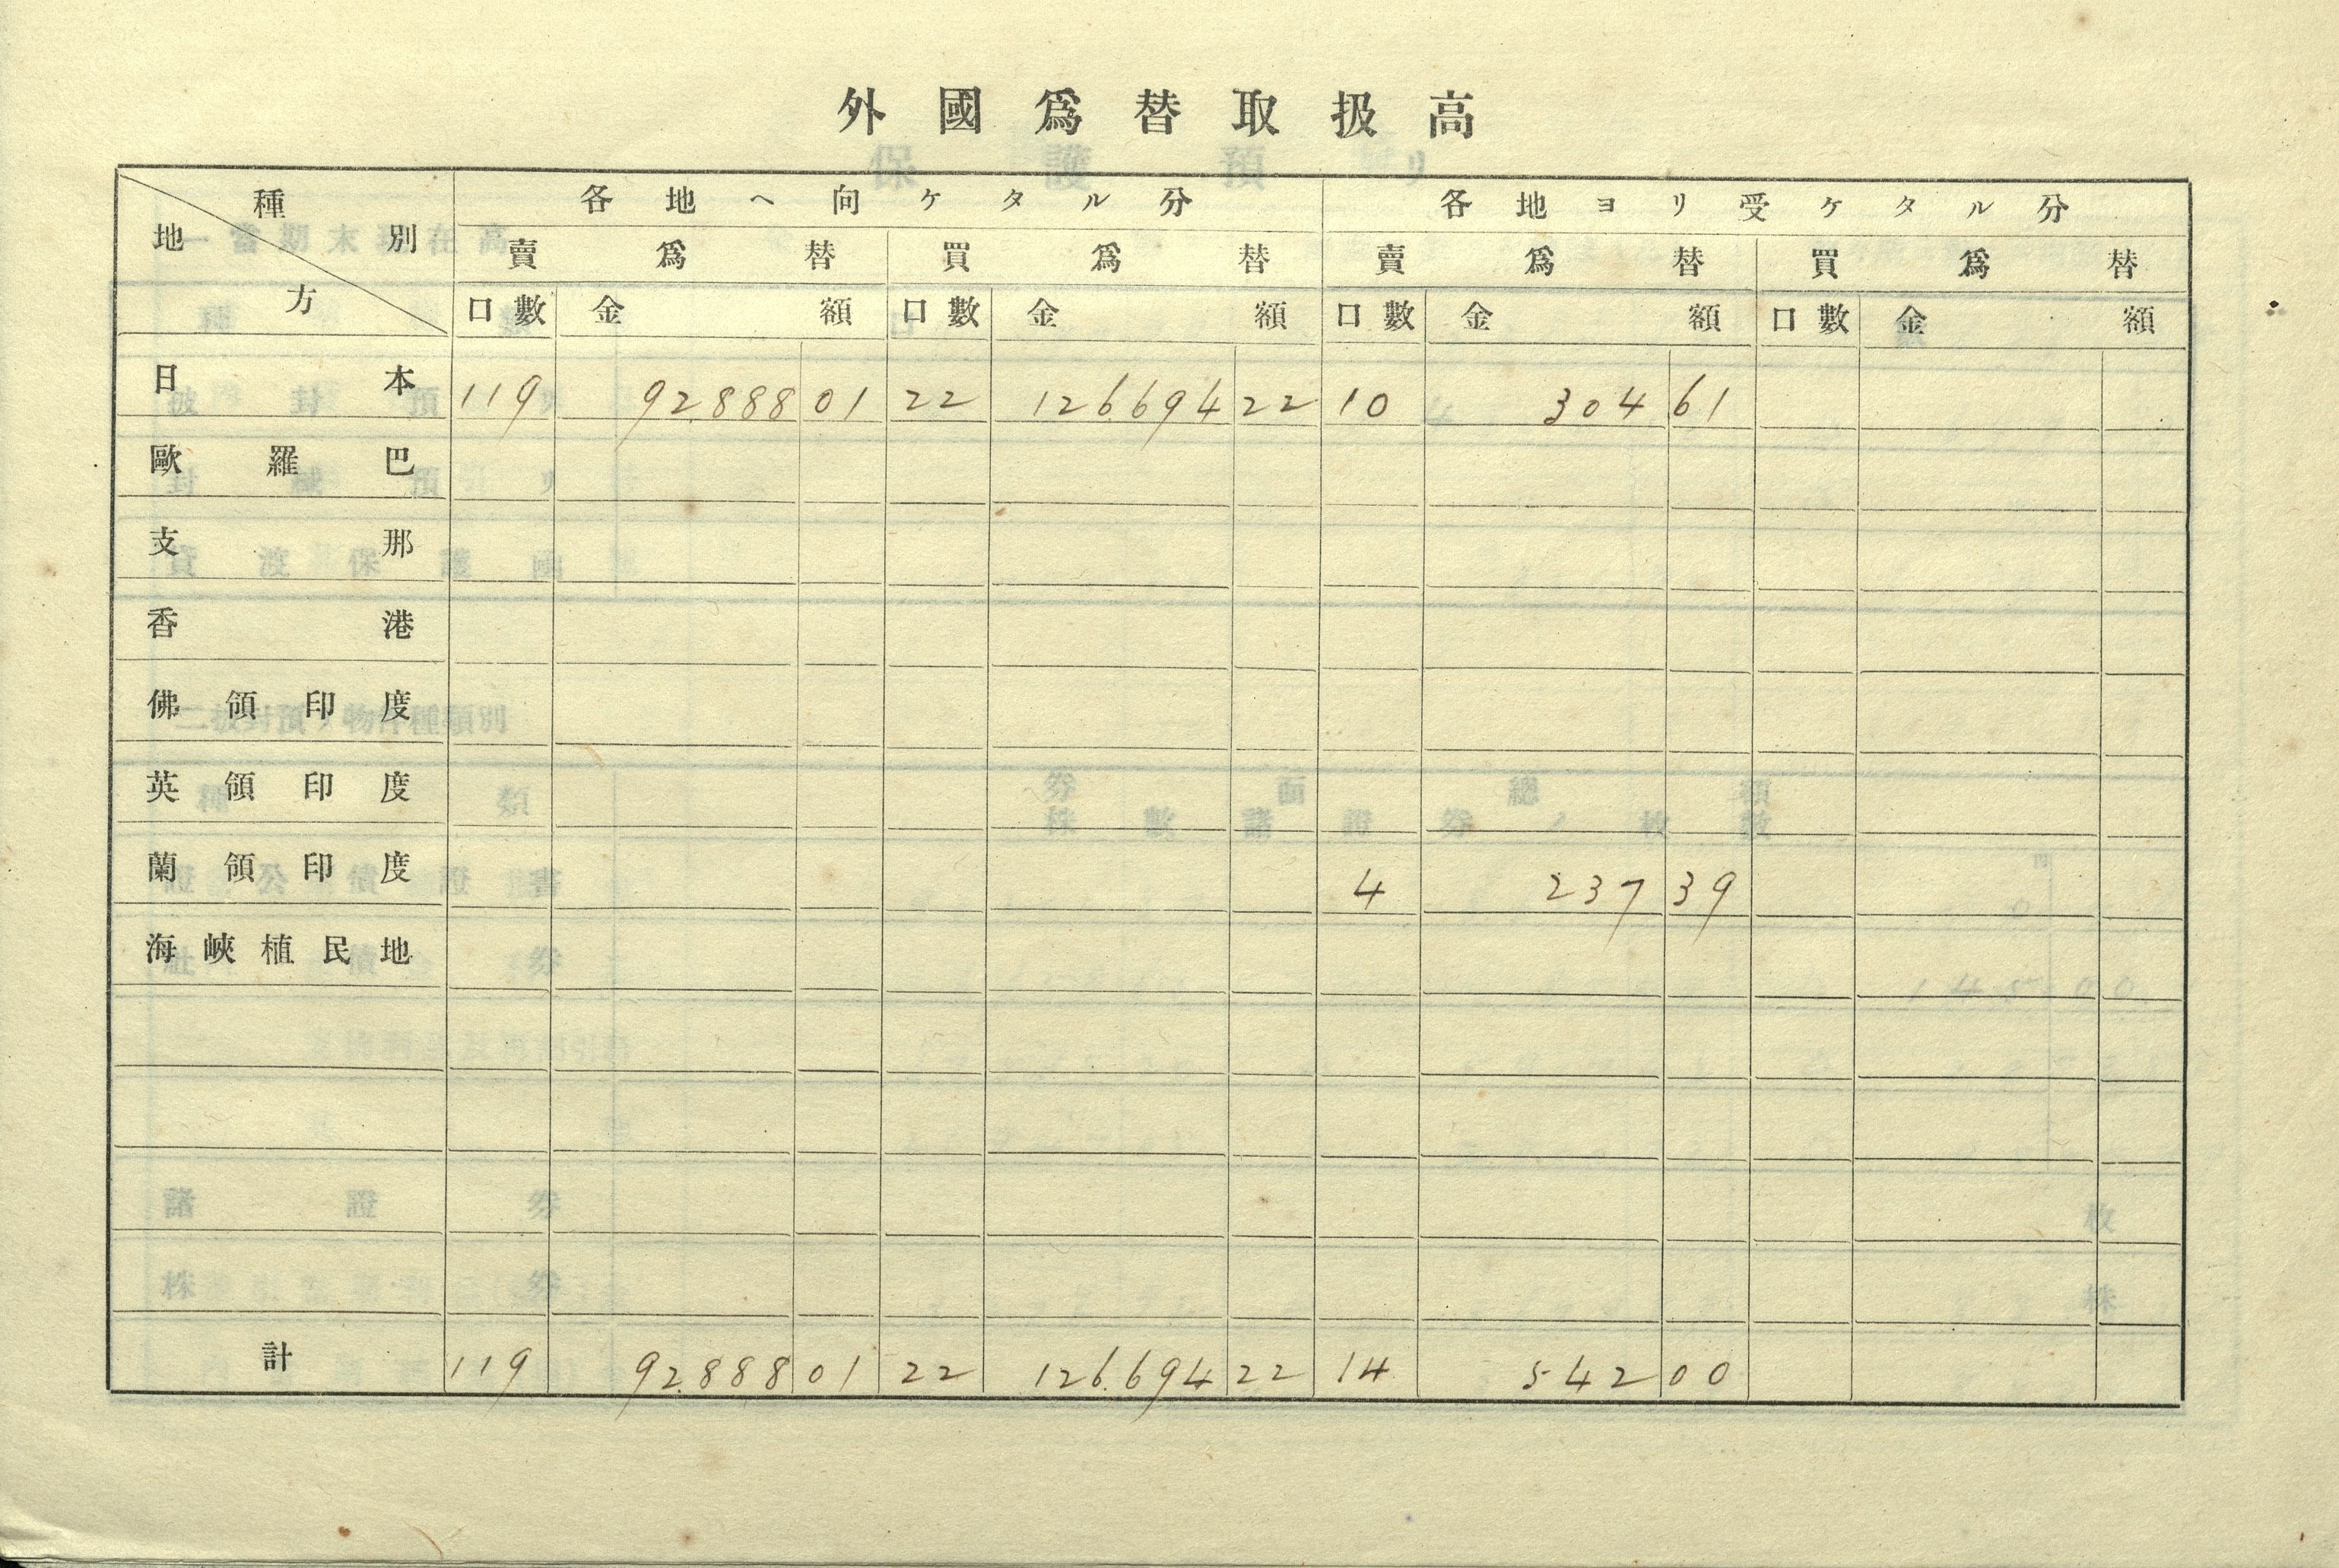 外國爲替取扱高
種別 地方 各地ヘ向ケタル分 各地ヨリ受ケタル分
賣爲替 買爲替 賣爲替 買爲替
口數 金額 口數 金額 口數 金額 口數 金額
日本 119 92,888 01 22 126,694 22 10 304 61
歐羅巴
支那
香港
佛領印度
英領印度
蘭領印度 4 237 39
海峽植民地
計 119 92,888 01 22 126,694 22 14 542 00